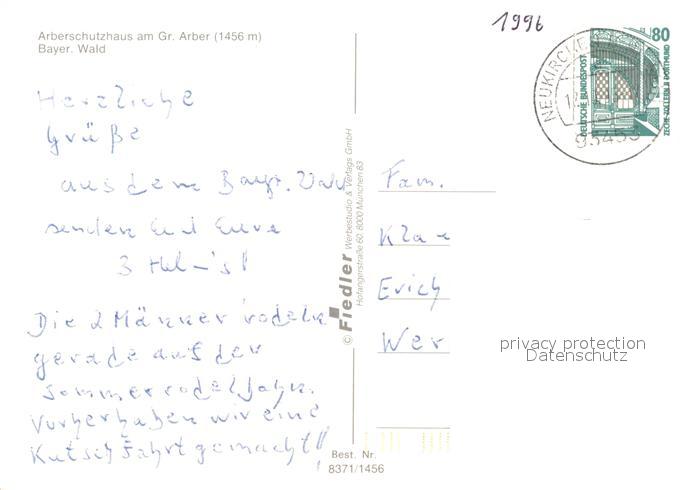 1996
Arberschutzhaus am Gr. Arber (1456 m)
Bayer. Wald
80
DEUTSCHE BUNDESPOST
ZECHE ZOLLERN II DORTMUND
NEUKIRCHE
93453
Herzliche
Grüße
aus dem Bayr. Wald
senden Euch Eure
3 Hel-'s!
Die 2 Männer rodeln
gerade auf der
Sommerrodelbahn.
Vorher haben wir eine
Kutschfahrt gemacht!!
Fam.
Kla
Erich
Wer
© Fiedler Werbestudio & Verlags GmbH
Hofangerstraße 60, 8000 München 83
privacy protection
Datenschutz
Best. Nr.
8371/1456